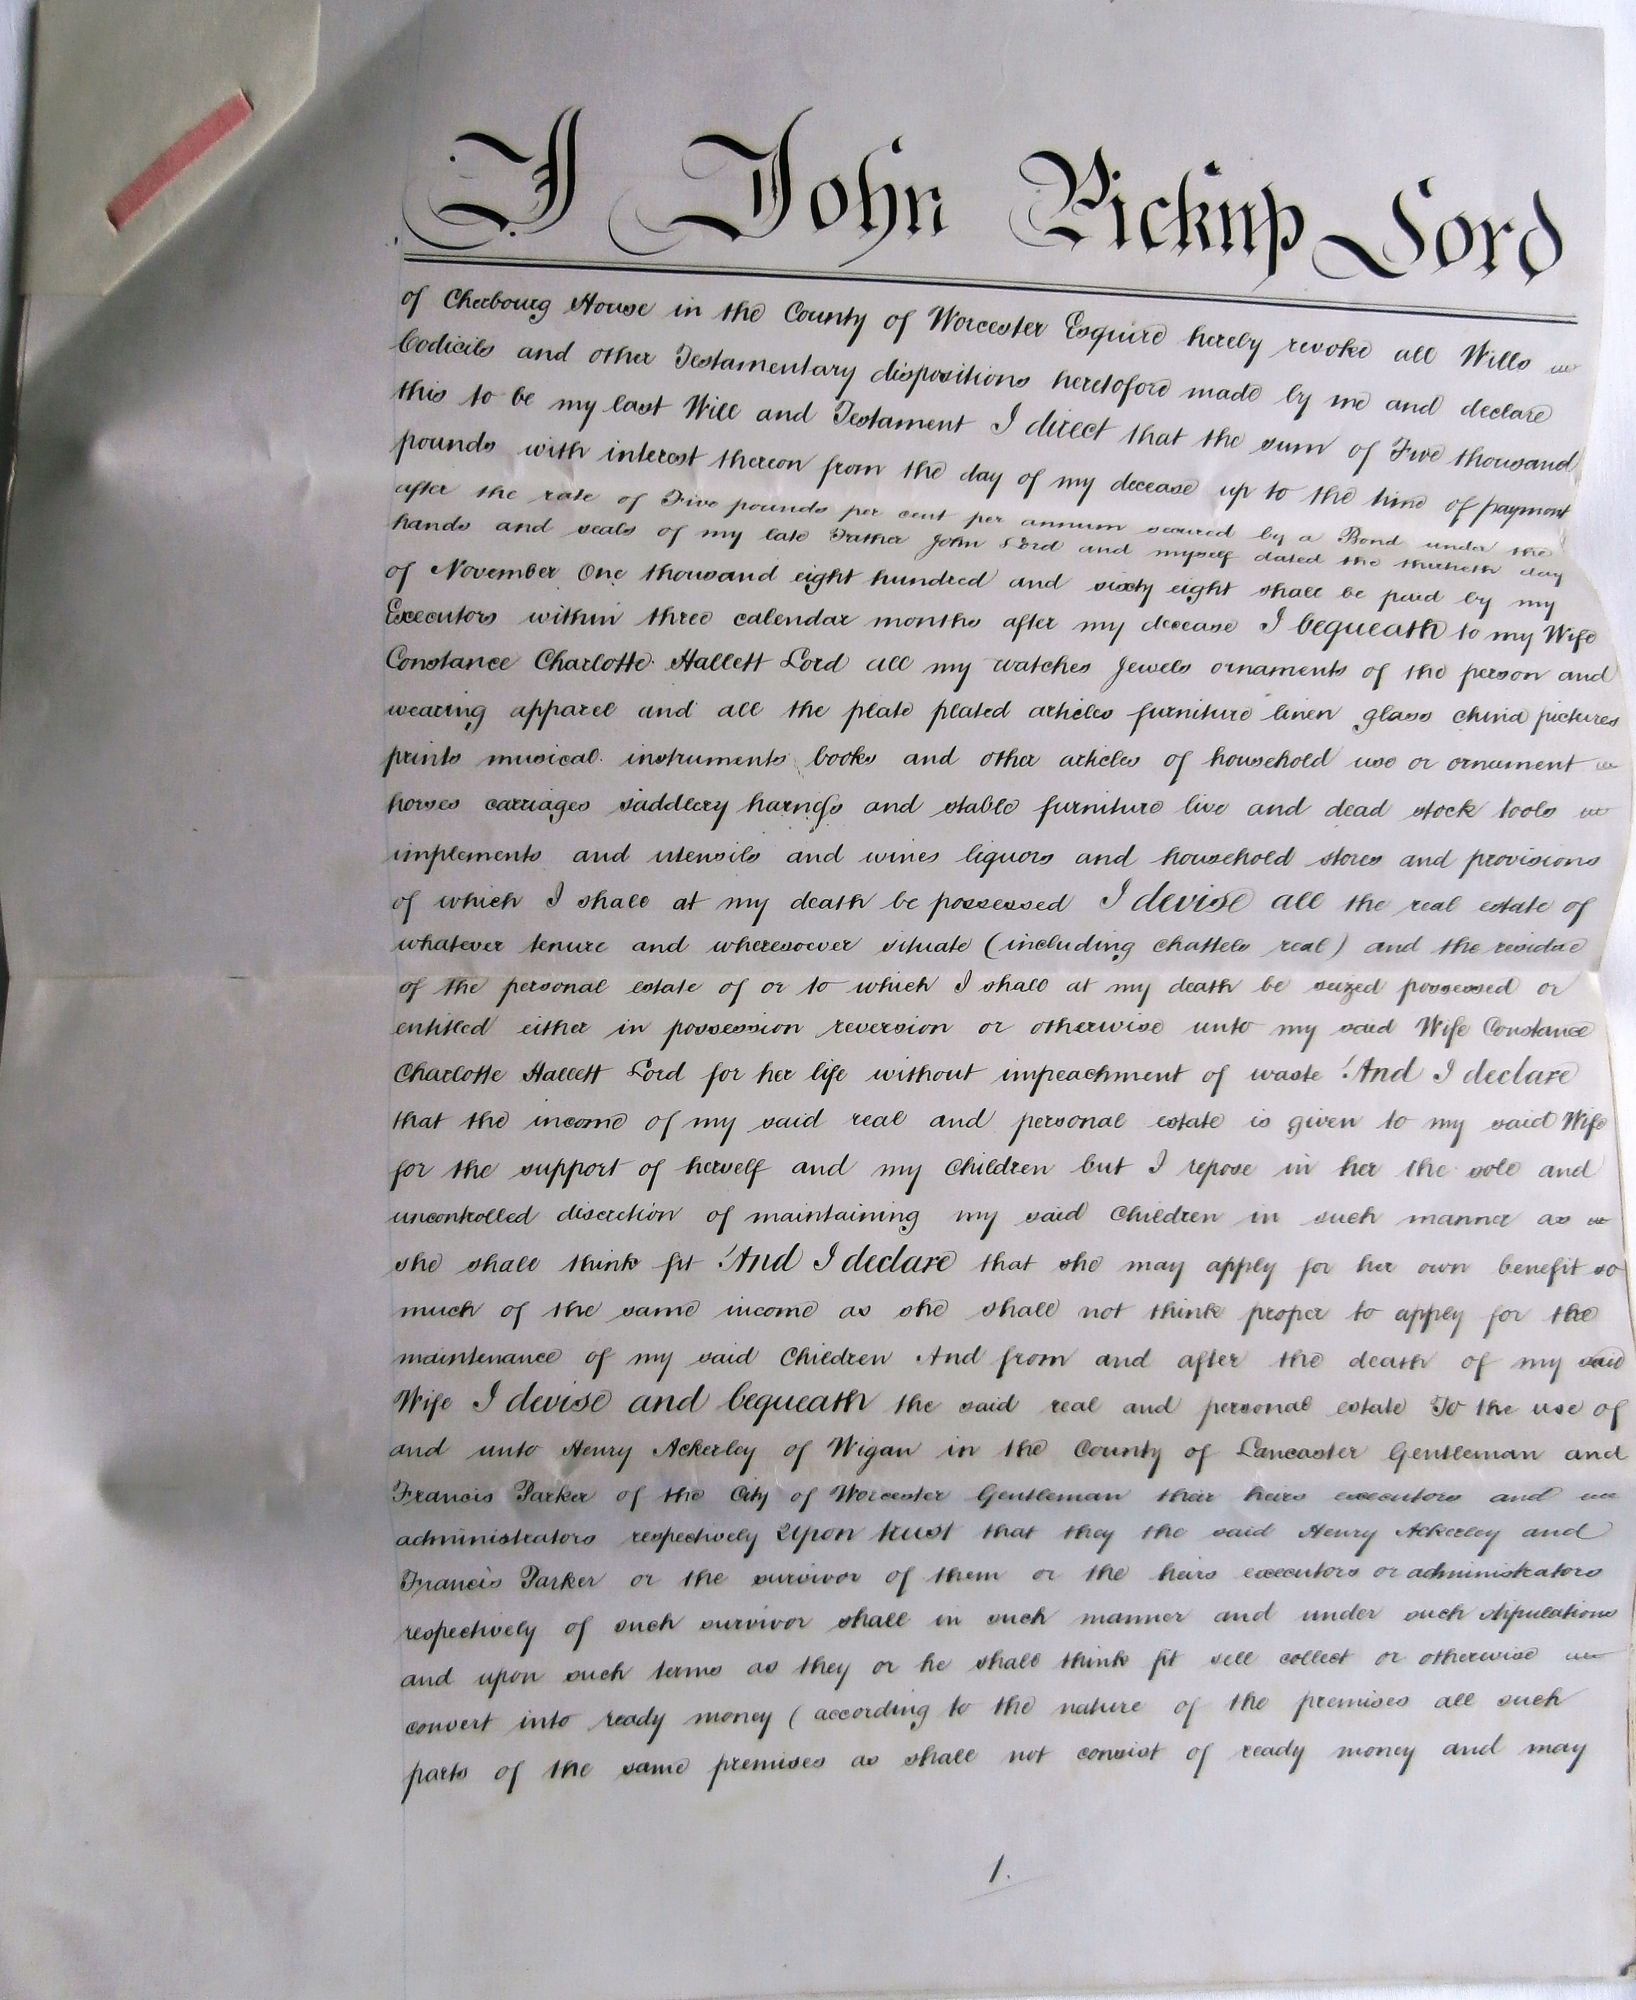 I John Pickup Lord
of Cherbourg House in the County of Worcester Esquire hereby revoke all Wills
Codicils and other Testamentary dispositions heretofore made by me and declare
this to be my last Will and Testament I direct that the sum of Five thousand
pounds with interest thereon from the day of my decease up to the time of payment
after the rate of Five pounds per cent per annum secured by a Bond under the
hands and seals of my late Father John Lord and myself dated the thirtieth day
of November One thousand eight hundred and sixty eight shall be paid by my
Executors within three calendar months after my decease I bequeath to my Wife
Constance Charlotte Hallett Lord all my watches Jewels ornaments of the person and
wearing apparel and all the plate plated articles furniture linen glass china pictures
prints musical instruments books and other articles of household use or ornament
horses carriages saddlery harness and stable furniture live and dead stock tools
implements and utensils and wines liquors and household stores and provisions
of which I shall at my death be possessed I devise all the real estate of
whatever tenure and wheresoever situate (including chattels real) and the residue
of the personal estate of or to which I shall at my death be seized possessed or
entitled either in possession reversion or otherwise unto my said Wife Constance
Charlotte Hallett Lord for her life without impeachment of waste And I declare
that the income of my said real and personal estate is given to my said Wife
for the support of herself and my Children but I repose in her the sole and
uncontrolled discretion of maintaining my said Children in such manner as
she shall think fit And I declare that she may apply for her own benefit so
much of the same income as she shall not think proper to apply for the
maintenance of my said Children And from and after the death of my said
Wife I devise and bequeath the said real and personal estate To the use of
and unto Henry Ackerley of Wigan in the County of Lancaster Gentleman and
Francis Parker of the City of Worcester Gentleman their heirs executors and
administrators respectively Upon trust that they the said Henry Ackerley and
Francis Parker or the survivor of them or the heirs executors or administrators
respectively of such survivor shall in such manner and under such stipulations
and upon such terms as they or he shall think fit sell collect or otherwise
convert into ready money (according to the nature of the premises all such
parts of the same premises as shall not consist of ready money and may
1.